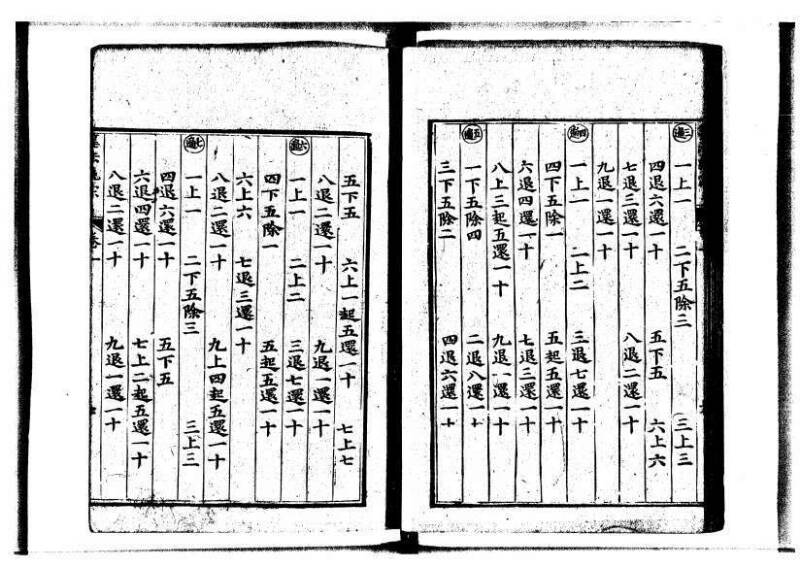 三遍
一上一 二下五除三 三上三
四退六還一十 五下五 六上六
七退三還一十 八退二還一十
九退一還一十
四遍
一上一 二上二 三退七還一十
四下五除一 五起五還一十
六退四還一十 七退三還一十
八上三起五還一十 九退一還一十
五遍
一下五除四 二退八還一十
三下五除二 四退六還一十
五下五 六上一起五還一十 七上七
八退二還一十 九退一還一十
六遍
一上一 二上二 三退七還一十
四下五除一 五起五還一十
六上六 七退三還一十
八退二還一十 九上四起五還一十
七遍
一上一 二下五除三 三上三
四退六還一十 五下五
六退四還一十 七上二起五還一十
八退二還一十 九退一還一十